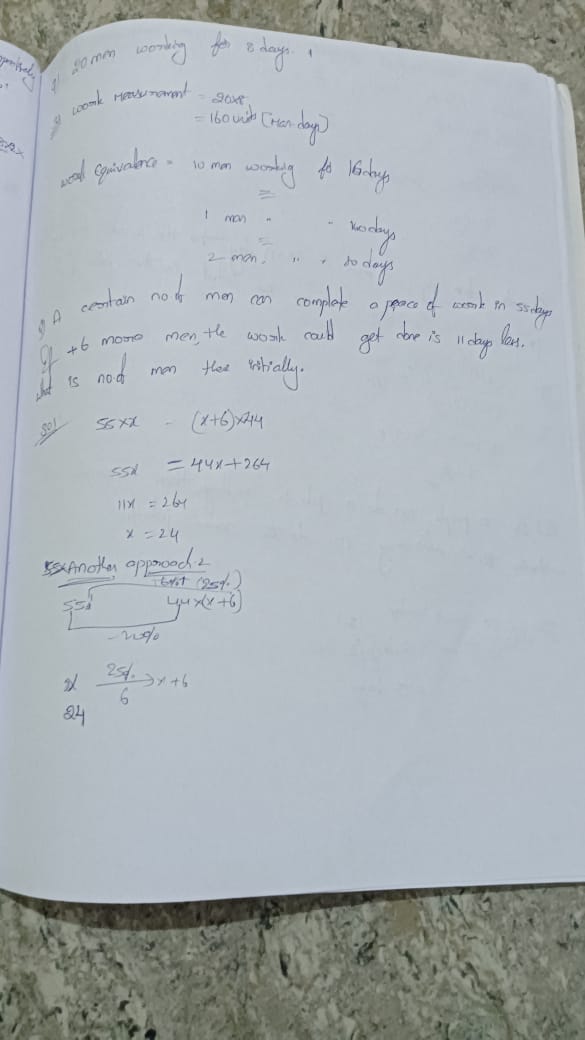 20 men working for 8 days.
work Measurement = 20x8
= 160 units (Man days)
work Equivalence = 10 men working for 16 days
=
1 man " " 160 days
=
2 man " " 80 days
A ceratain no.of men can complete a peace of work in 55 days
If +6 more men, the work could get done is 11 days less.
what is no.of men thee initially.
Sol 55xx - (x+6)x44
55x = 44x+264
11x = 264
x = 24
Another approach 2
(25%)
55x 44x(x+6)
-20%
x 25% → x+6
6
24